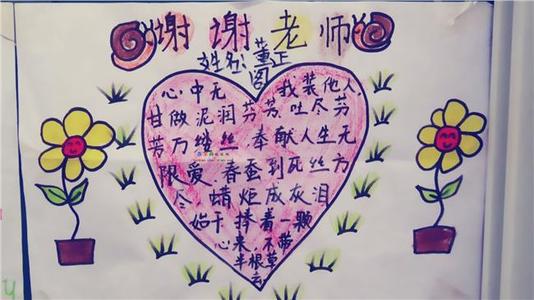 谢谢老师
姓名:董正阁
心中无 我装他人,
甘做泥润芬芳.吐尽芬
芳万缕丝 奉献人生无
限爱.春蚕到死丝方
尽,蜡炬成灰泪
始干 捧着一颗
心来,不带
半根草
去